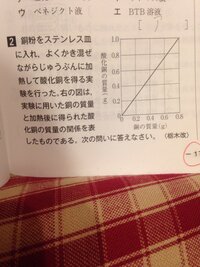 ウ ベネジクト液
エ BTB溶液
2 銅粉をステンレス皿
に入れ，よくかき混ぜ
ながらじゅうぶんに加
熱して酸化銅を得る実
験を行った。右の図は，
実験に用いた銅の質量
と加熱後に得られた酸
化銅の質量の関係を表
したものである。次の問いに答えなさい。 〈栃木改〉
酸化銅の質量(g)
1.0
0.8
0.6
0.4
0.2
0
0 0.2 0.4 0.6 0.8
銅の質量(g)